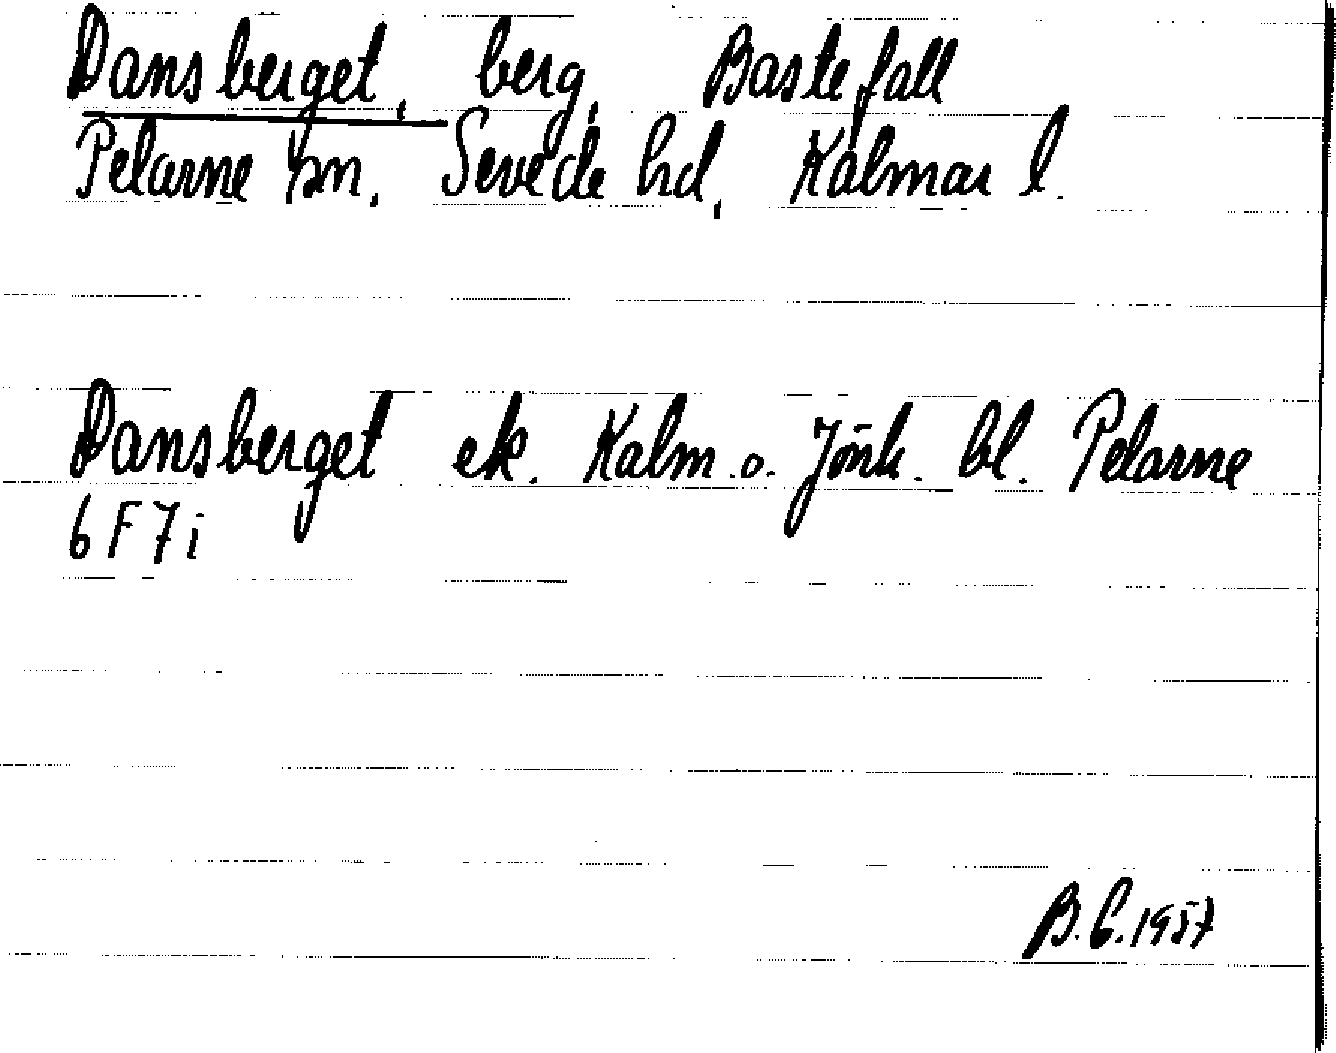 Dansberget, berg, Bastefall
Pelarne sn, Sevede hd, Kalmar l.
Dansberget ek. Kalm. o. Jönk. bl. Pelarne
6F7i
B.C. 1957